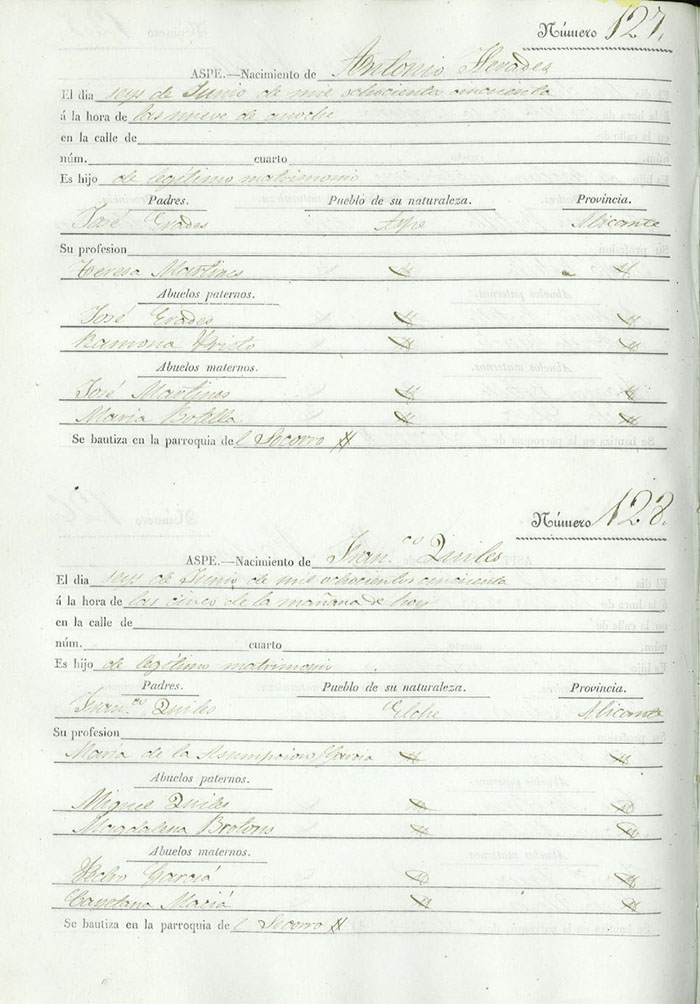 Número 127.
ASPE.—Nacimiento de Antonio Herades
El dia seys de Junio de mil ochocientos cincuenta
á la hora de las nueve de anoche
en la calle de
núm. cuarto
Es hijo de legítimo matrimonio
Padres. Pueblo de su naturaleza. Provincia.
José Erades Aspe Alicante
Su profesion
Teresa Martines
Abuelos paternos.
José Erades
Ramona
Abuelos maternos.
José Martines
Maria Botella
Se bautiza en la parroquia del Socorro
Número 128.
ASPE.—Nacimiento de Fran.co Quiles
El dia seys de Junio de mil ochocientos cincuenta
á la hora de las cinco de la mañana de hoy
en la calle de
núm. cuarto
Es hijo de legítimo matrimonio
Padres. Pueblo de su naturaleza. Provincia.
Fran.co Quiles Elche Alicante
Su profesion
Maria de la Asumpcion Garcia
Abuelos paternos.
Miguel Quiles
Magdalena Brotons
Abuelos maternos.
Pedro Garciá
Cayetana Maciá
Se bautiza en la parroquia del Socorro